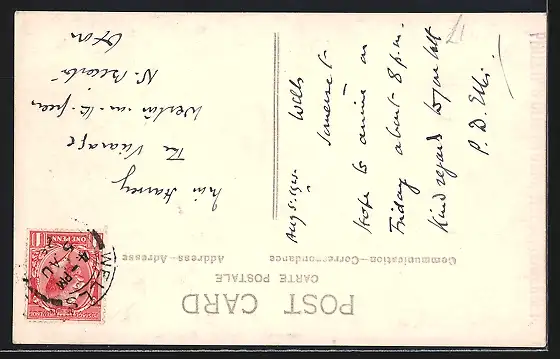 POST CARD
CARTE POSTALE
Communication—Correspondance
Address—Adresse
Aug 5. 1925. Wells
Somerset
Hope to arrive on
Friday about 8 p.m.
Kind regards to you both
P. D. Ellis
Miss Harvey
The Vicarage
Weston-on-the-Green
Nr. Bicester
Oxon
WELLS
PM
5 AU
ONE PENNY